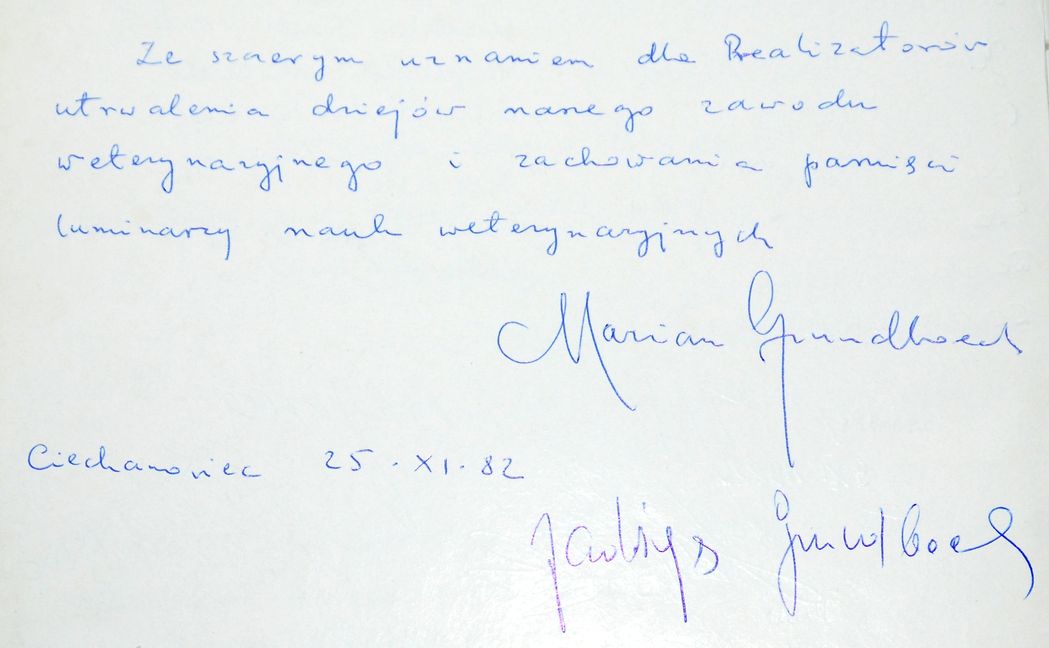 Ze szczerym uznaniem dla Realizatorów
utrwalenia dziejów naszego zawodu
weterynaryjnego i zachowania pamięci
luminarzy nauk weterynaryjnych
Marian Grundboeck
Ciechanowiec 25.XI.82
Jadwiga Grundboeck